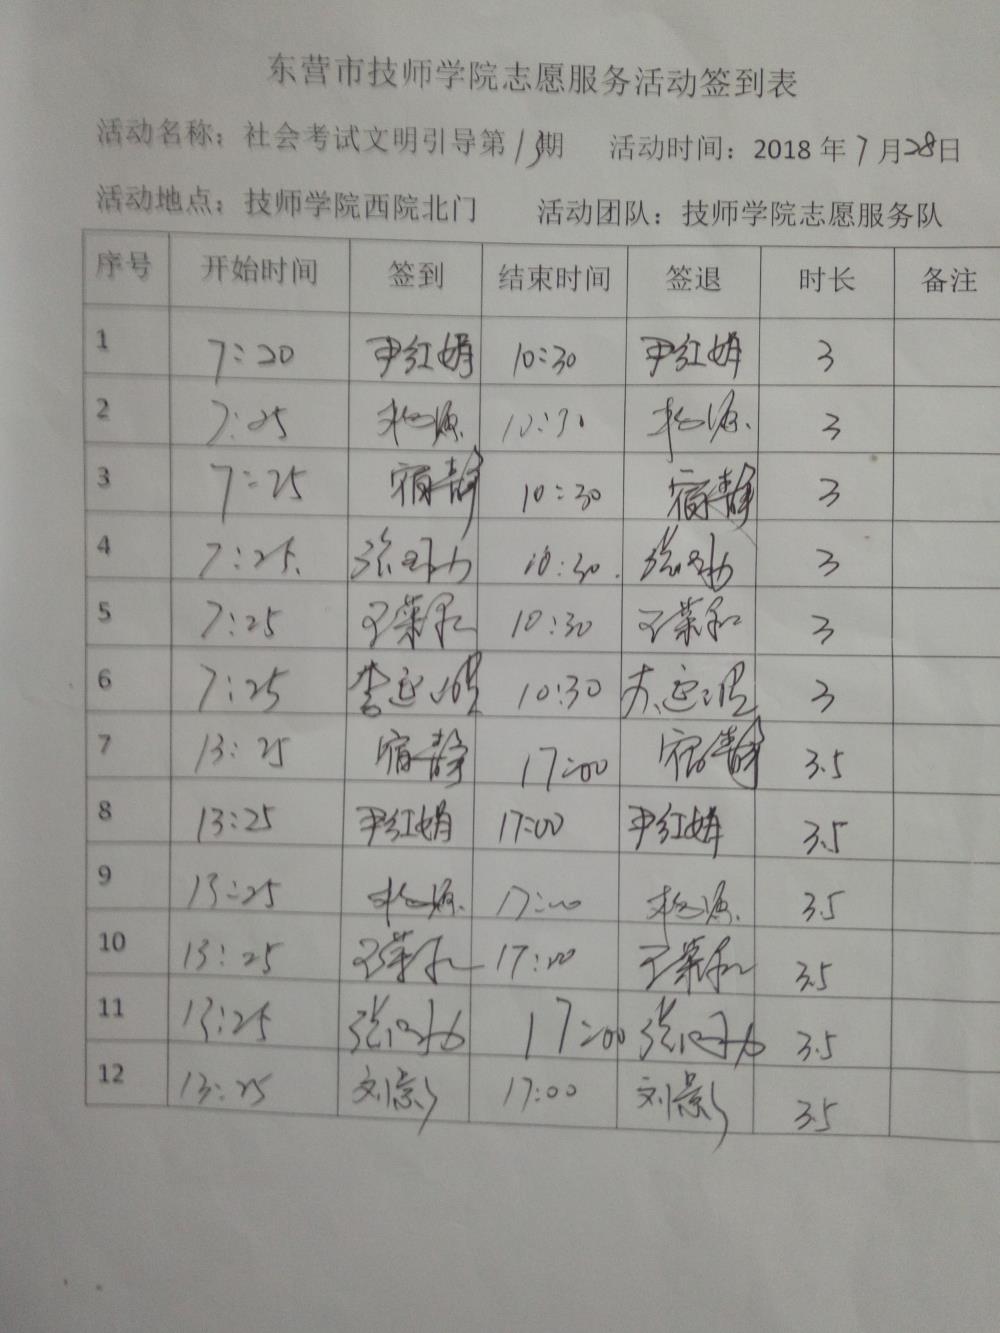 东营市技师学院志愿服务活动签到表
活动名称：社会考试文明引导第13期 活动时间：2018年7月28日
活动地点：技师学院西院北门 活动团队：技师学院志愿服务队
序号 开始时间 签到 结束时间 签退 时长 备注
1 7:20 尹红娟 10:30 尹红娟 3
2 7:25 10:30 3
3 7:25 宿静 10:30 宿静 3
4 7:25 10:30 3
5 7:25 王荣和 10:30 王荣和 3
6 7:25 10:30 3
7 13:25 宿静 17:00 宿静 3.5
8 13:25 尹红娟 17:00 尹红娟 3.5
9 13:25 17:00 3.5
10 13:25 王荣和 17:00 王荣和 3.5
11 13:25 17:00 3.5
12 13:25 刘影 17:00 刘影 3.5